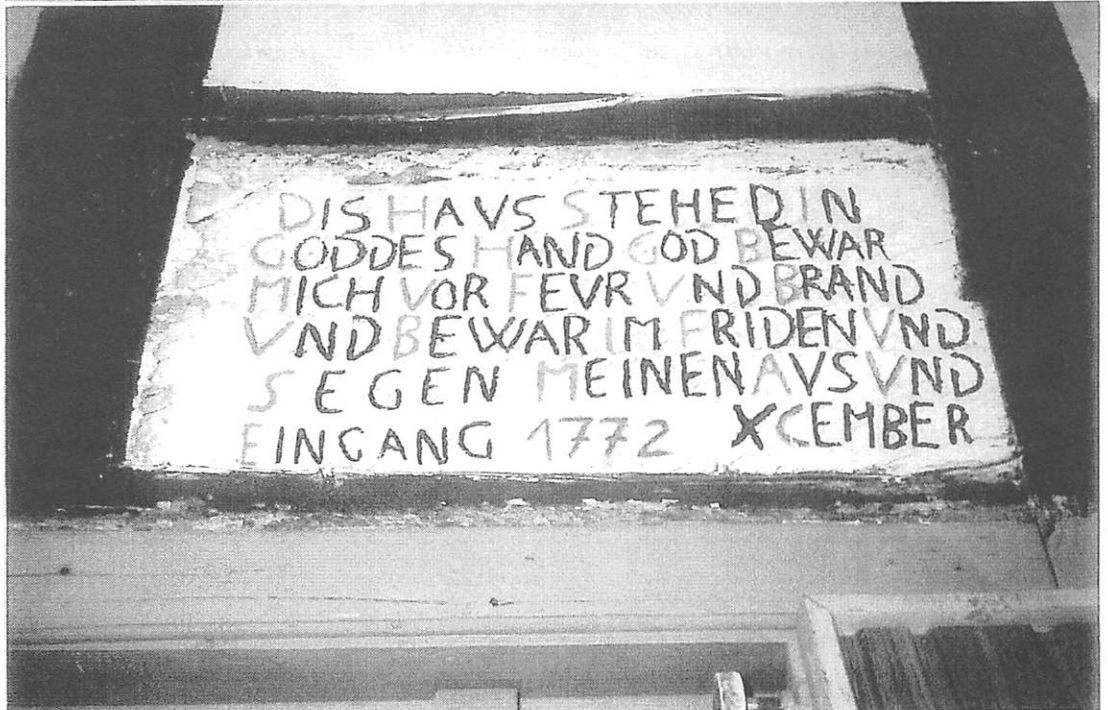 DIS HAVS STEHED IN
GODDES HAND GOD BEWAR
MICH VOR FEVR VND BRAND
VND BEWAR IM FRIDEN VND
SEGEN MEINEN AVS VND
EINGANG 1772 XCEMBER